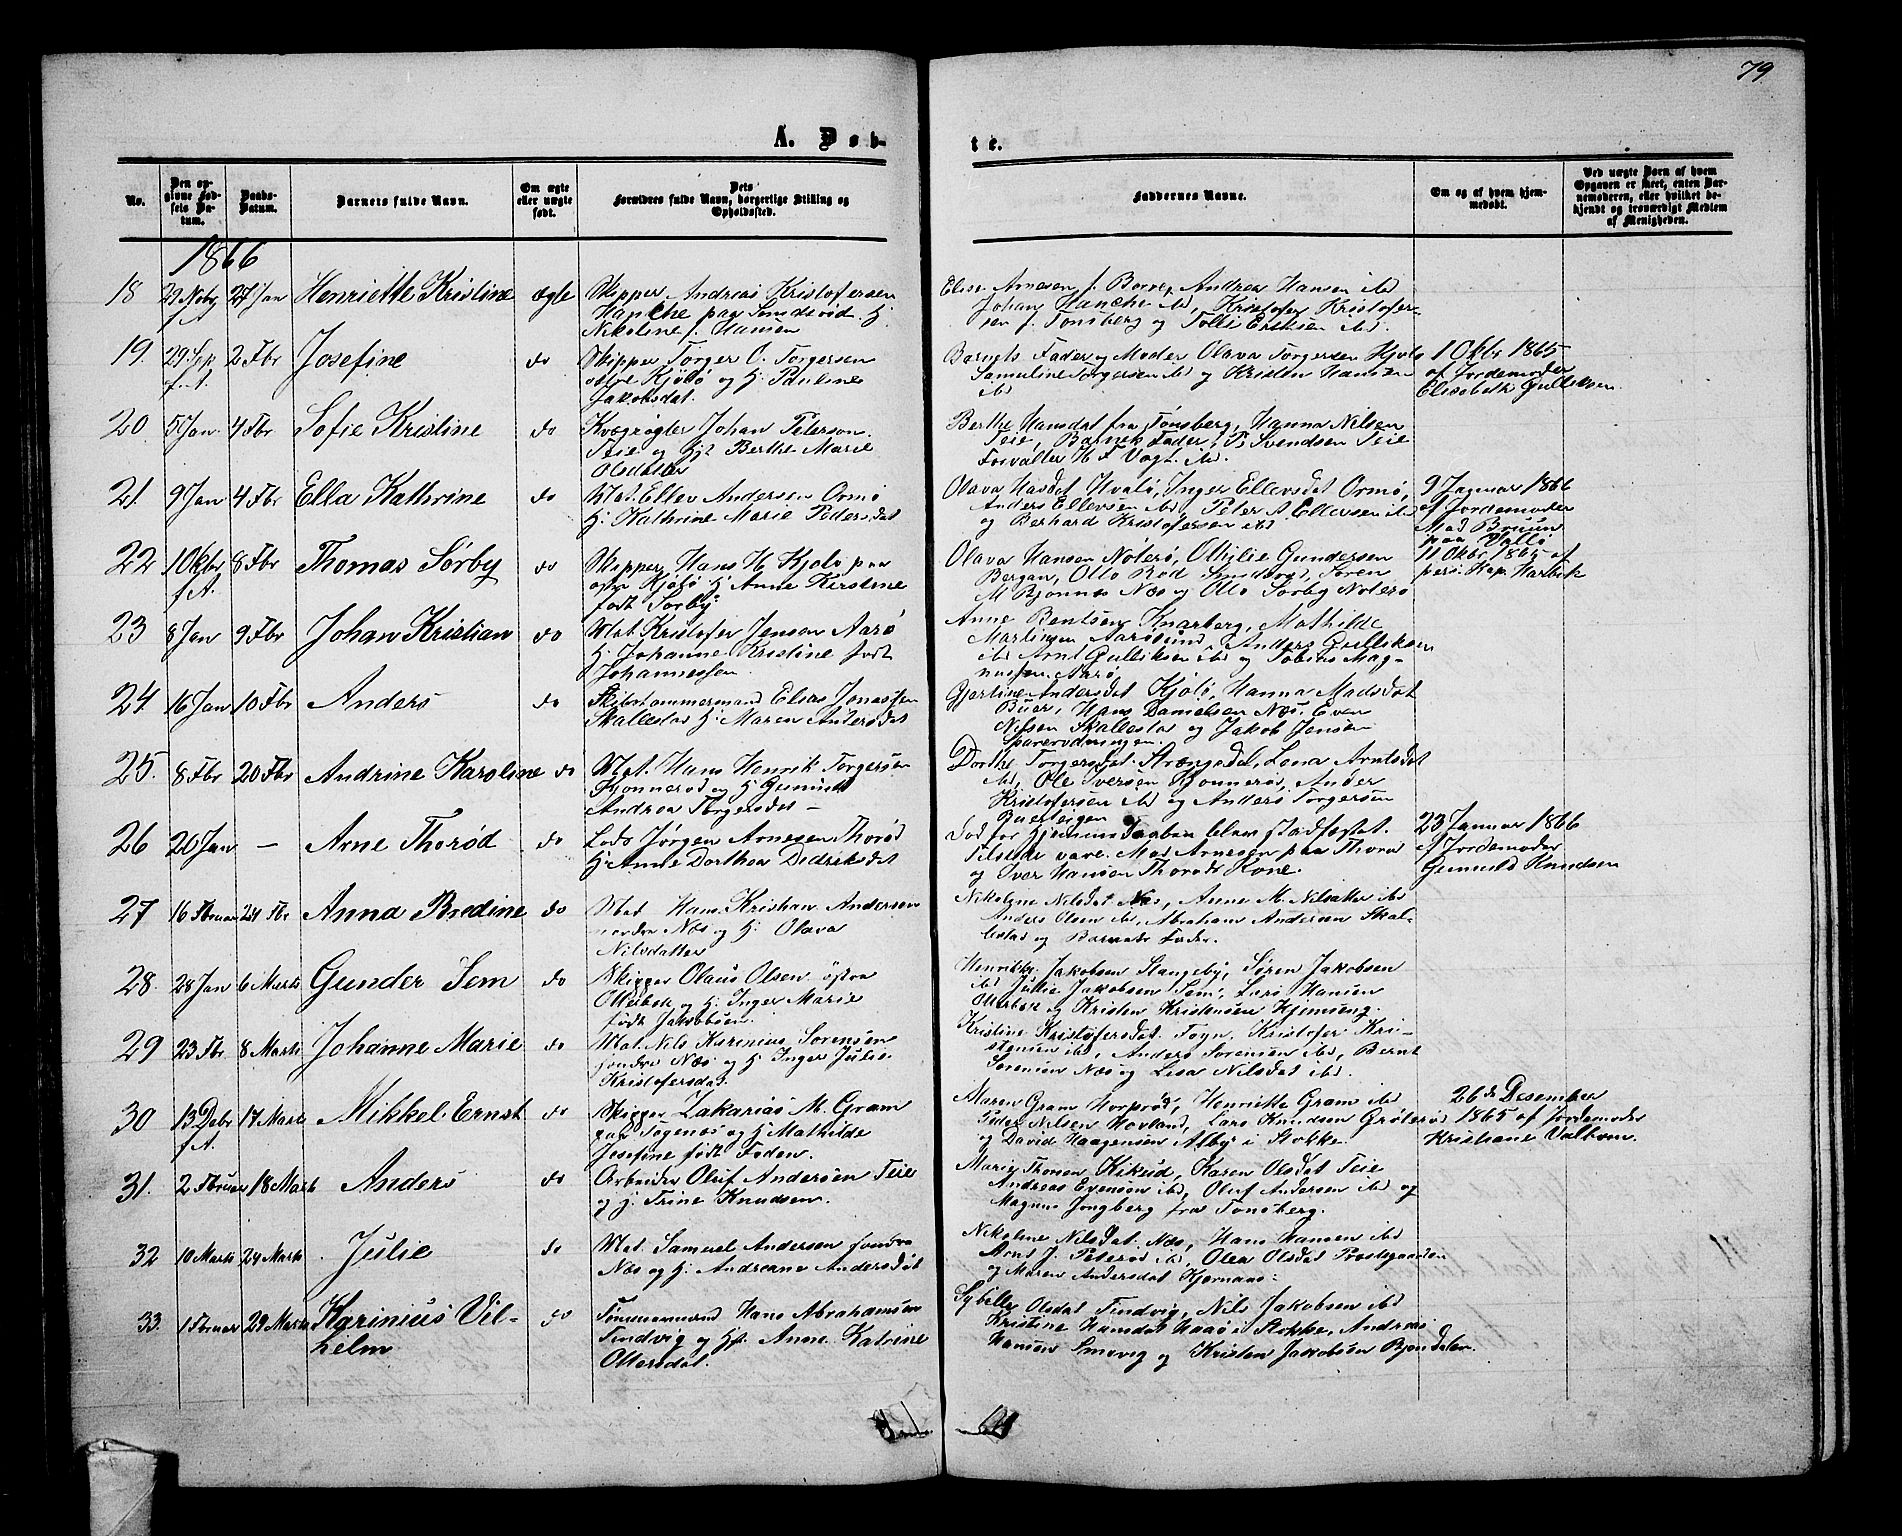 79
A. Døb-
te.
No.
Den op-
givne Fød-
sels Da-
tum.
Daabs-
Datum.
Barnets fulde Navn.
Om ægte
eller uægte
født.
Dets
Forældres fulde Navn, borgerlige Stilling og
Opholdssted.
Faddernes Navne.
Om og af hvem hjem-
medøbt.
Ved uægte Børn af hvem
Opgaven er skeet, enten Bar-
nemoderen, eller hvilket be-
kjendt og troværdigt Medlem
af Menigheden.
1866
18 29 Nobr f.A. 27 Jan Henriette Kristine ægte
Skipper Andreas Kristofersen
Hanche paa Smiderød. Hj
Nikoline f. Hansen
Elise Arnesen f. Borre, Andrea Hansen ibd
Johan Hanche ibd, Kristofer Kristofer-
sen f. Tønsberg og Tolli Eriksen ibd.
19. 29 Sep f.A. 2 Fbr Josefine do
Skipper Torger O. Torgersen
østre Kjøbø og Hj Pauline
Jakobsdat.
Barnets Fader og Moder Olava Torgersen Kjøbø
Samueline Torgersen ibd og Kristen Hansen
ibd
1 Okbr 1865
af Jordemoder
Elisabeth Gulliksen
20. 5 Jan 4 Fbr Sofie Kristine do
Kvægrøgter Johan Peterson
Teie og Hj. Berthe Marie
Olsdatter
Berthe Hansdat fra Tønsberg, Hanna Nilsen
Teie, Barnets Fader, P. Svendsen Teie
Forvalter H F Vogt. ibd.
21. 9 Jan 4 Fbr Ella Kathrine do
Mat. Ellev Andersen Ormø
Hj. Kathrine Marie Pedersdat
Olava Hasdat Hvalø, Inger Ellevsdat Ormø,
Anders Ellevsen ibd, Peter A. Ellevsen ibd
og Berhard Kristofersen ibd
9 Januar 1866
af Jordemoder
Mad Bruun
paa Valø
22 10 Okbr f.A. 8 Fbr Thomas Sørby do
Skipper Hans H. Kjøbø paa
østre Kjøbø Hj Anne Kirstine
født Sørby.
Olava Hansen Nøterø, Othilie Gundersen
Bergan, Otto Rød Smidsrød, Søren
M Bjønnes Næs og Otto Sørby Nøterø
11 Okbr 1865 af
pers. Kap. Harbitz
23 8 Jan 9 Fbr Johan Kristian do
Mat. Kristofer Jensen Aarø
Hj. Johanne Kristine født
Johannessen
Anne Bentsen Knarberg, Mathilde
Martinsen Aarøsund, Anders Gulliksen
ibd Arnt Gulliksen ibd og Tobias Mag-
nussen Aarø
24 16 Jan 10 Fbr Anders do
Skibstømmermand Elias Jonassen
Skallestad Hj. Maren Andersdat
Gjertine Andersdat Kjøbø, Hanna Madsdat
Buer, Hans Danielsen Næs, Even
Nilsen Skallestad og Jakob Jensen
25. 8 Fbr 20 Fbr Andrine Karoline do
Mat. Hans Henrik Torgersen
Hjønnerød og Hj Gunild
Andrea Torgersdat
Dorthe Torgersdat Strengsdal, Lona Arntsdat
ibd, Ole Iversen Hjønnerød, Ander
Kristofersen ibd og Anders Torgersen
26 20 Jan — Arne Thorød do
Lods Jørgen Arnesen Thorød
Hj. Anne Dorthea Dideriksdat
Død før Hjemmedaaben blev stadfæstet.
Tilstede vare Mad Arnesen paa Thorød
og Iver Hansen Thorøds Kone.
23 Januar 1866
af Jordemoder
Gunnild Knudsen
27 16 Fbruar 24 Fbr Anna Bredine do
Mat Hans Kristian Andersen
nordre Næs og Hj. Olava
Nilsdatter
Nikoline Nilsdat Næs, Anne M. Nilsdatter ibd
Anders Olsen ibd, Abraham Andersen Skal-
lestad og Barnets Fader.
28. 28 Jan 6 Marts Gunder Sem do
Skipper Olaus Olsen østre
Otterbek og Hj. Inger Marie
født Jakobsen.
Henrikke Jakobsen Stangeby, Søren Jakobsen
ibd Julie Jakobsen Sem, Lars Hansen
Otterbek og Kristen Kristensen Hjemseng.
29 23 Fbr 8 Marts Johanne Marie do
Mat. Nils Karinius Sørensen
søndre Næs og Hj Inger Julie
Kristofersdat.
Kristine Kristofersdat Føyn, Kristofer Kri-
stensen ibd, Anders Sørensen ibd, Bernt
Sørensen Næs og Lisa Nilsdat ibd.
30 13 Debr f.A. 17 Marts Mikkel Ernst do
Skipper Zakarias M. Gram
paa Tøgenæs og Hj Mathilde
Josefine født Foden.
Maren Gram Horperød, Henriette Gram ibd
Peder Nilsen Hovland, Lars Knudsen Grøterød
og David Haagensen Alby i Stokke.
26de Desember
1865 af Jordemoder
Kristiane Valbom.
31. 2 Fbruar 18 Marts Anders do
Arbeider Oluf Andersen Teie
og Hj. Trine Knudsen.
Marie Thoresen Kikud, Karen Olsdat Teie
Andreas Evensen ibd, Oluf Andersen ibd og
Magnus Jongberg fra Tønsberg.
32 10 Marts 24 Marts Julie do
Mat. Samuel Andersen søndre
Næs og Hj. Andreane Andersdat
Nikoline Nilsdat Næs, Hans Hansen ibd
Arnt J. Peterød ibd, Olea Olsdat Prestegaarden
og Maren Andersdat Kjørnaas.
33. 1 Fbruar 29 Marts Karinius Vil-
helm do
Tømmermand Hans Abrahamsen
Tindvig og Hj. Anne Katrine
Ottersdat.
Sybille Olsdat Tindvig, Nils Jakobsen ibd
Kristine Hansdat Haaø i Stokke, Andreas
Hansen Smevig og Kristen Jakobsen Bjøndalen.